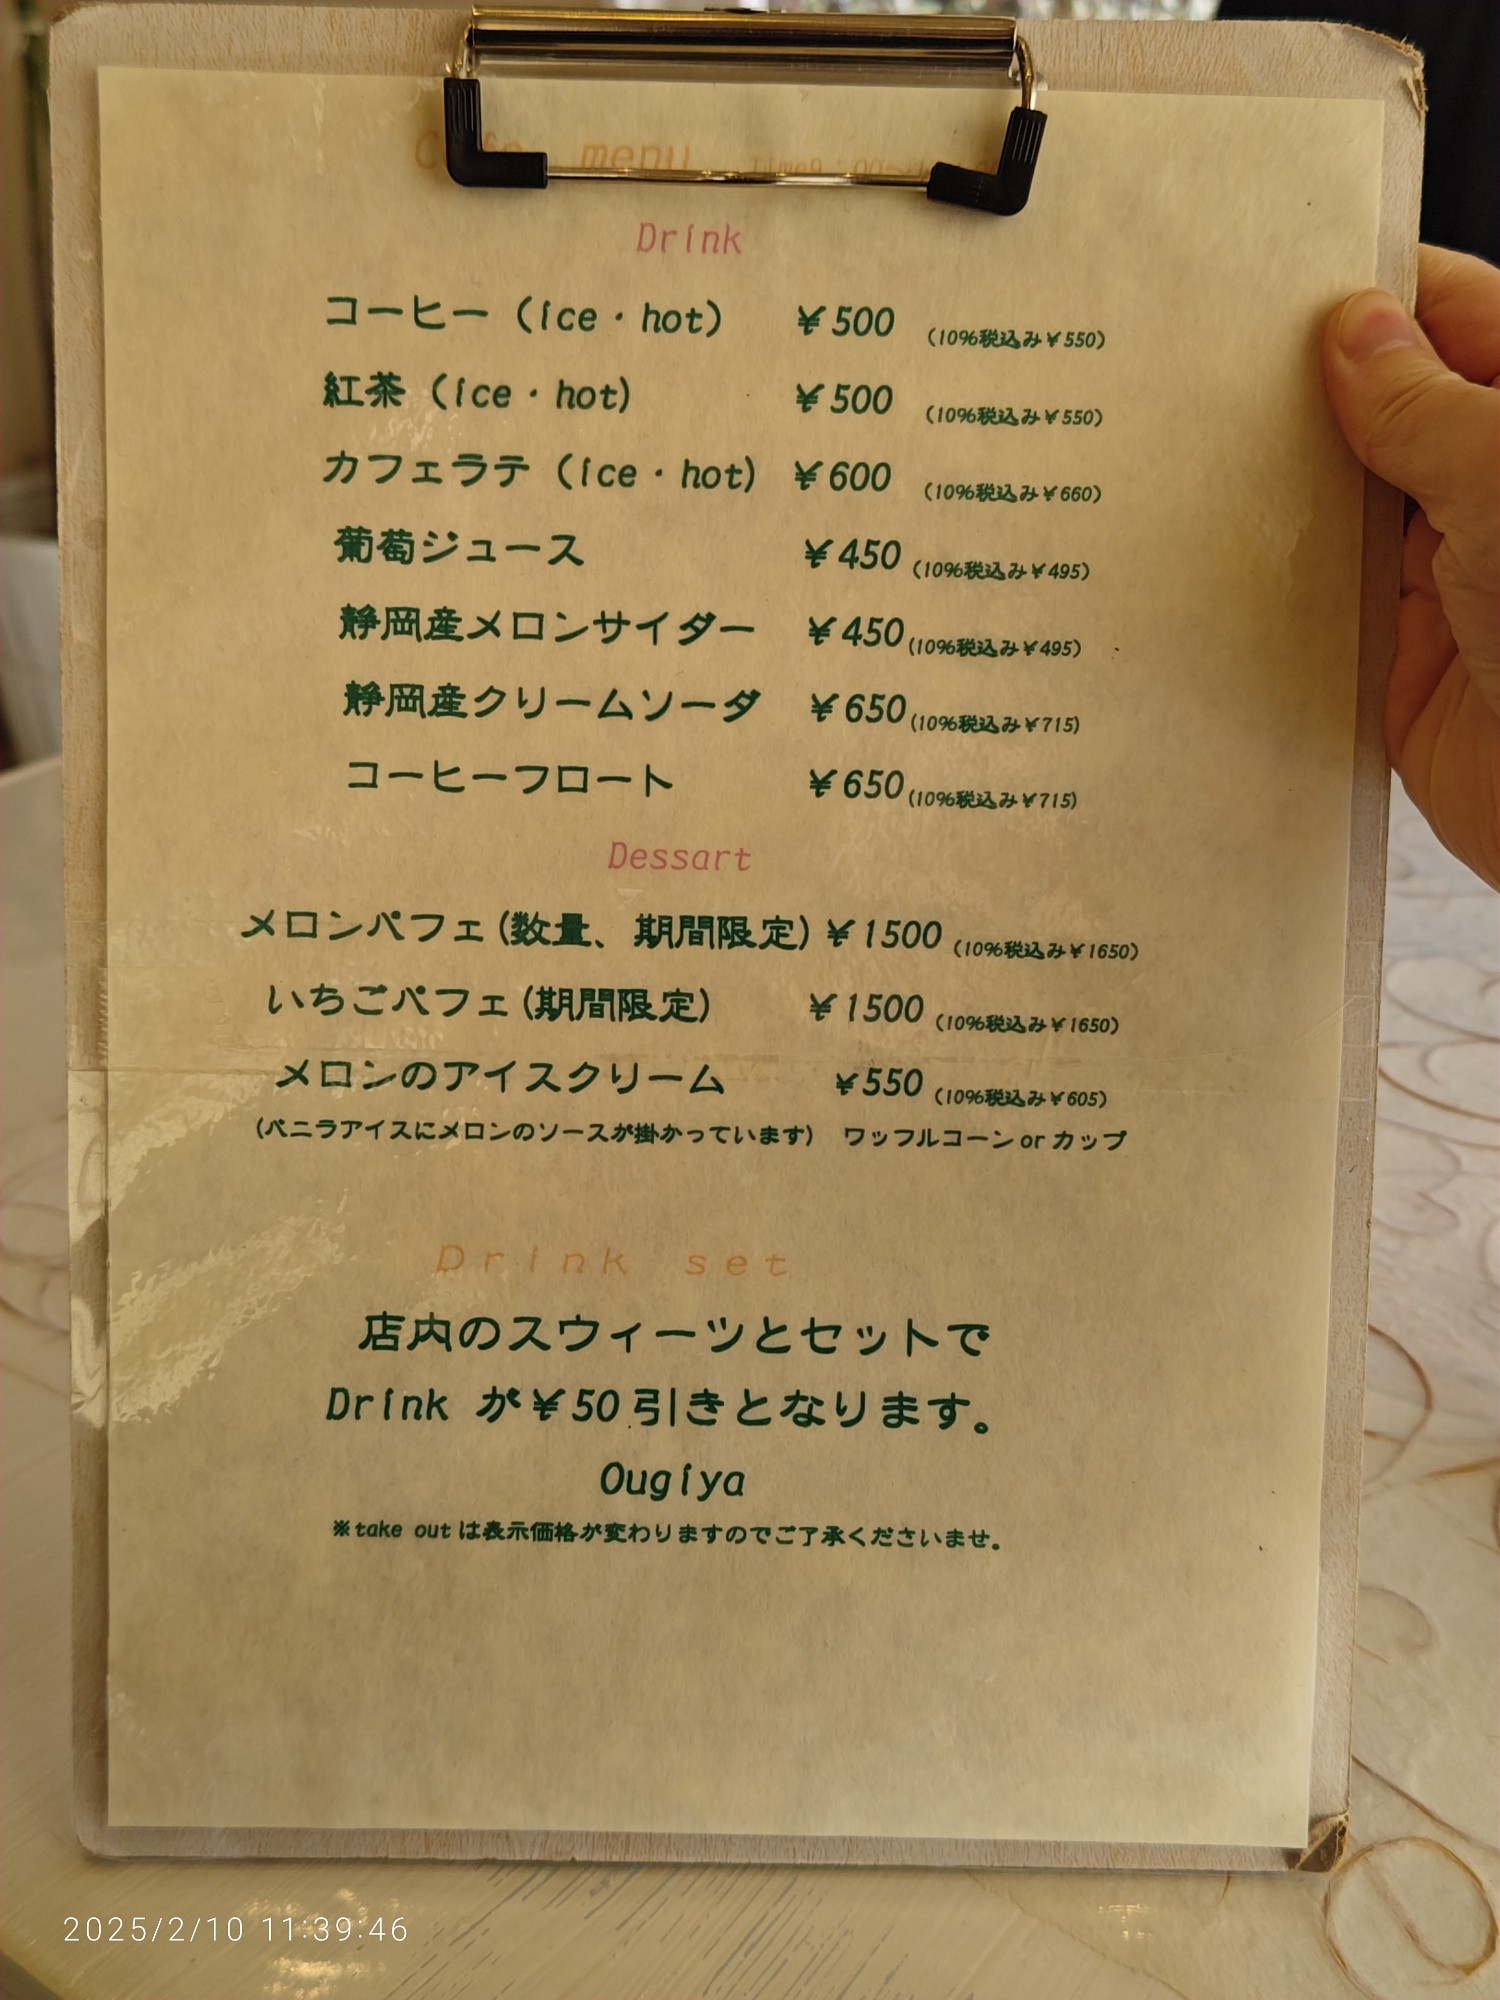 Cafe menu
Drink
コーヒー（ice・hot） ￥500 （10%税込み￥550）
紅茶（ice・hot） ￥500 （10%税込み￥550）
カフェラテ（ice・hot） ￥600 （10%税込み￥660）
葡萄ジュース ￥450 （10%税込み￥495）
静岡産メロンサイダー ￥450 （10%税込み￥495）
静岡産クリームソーダ ￥650 （10%税込み￥715）
コーヒーフロート ￥650 （10%税込み￥715）
Dessart
メロンパフェ(数量、期間限定) ￥1500 （10%税込み￥1650）
いちごパフェ(期間限定) ￥1500 （10%税込み￥1650）
メロンのアイスクリーム ￥550 （10%税込み￥605）
（バニラアイスにメロンのソースが掛かっています） ワッフルコーン or カップ
Drink set
店内のスウィーツとセットで
Drink が￥50引きとなります。
Ougiya
※take out は表示価格が変わりますのでご了承くださいませ。
2025/2/10 11:39:46